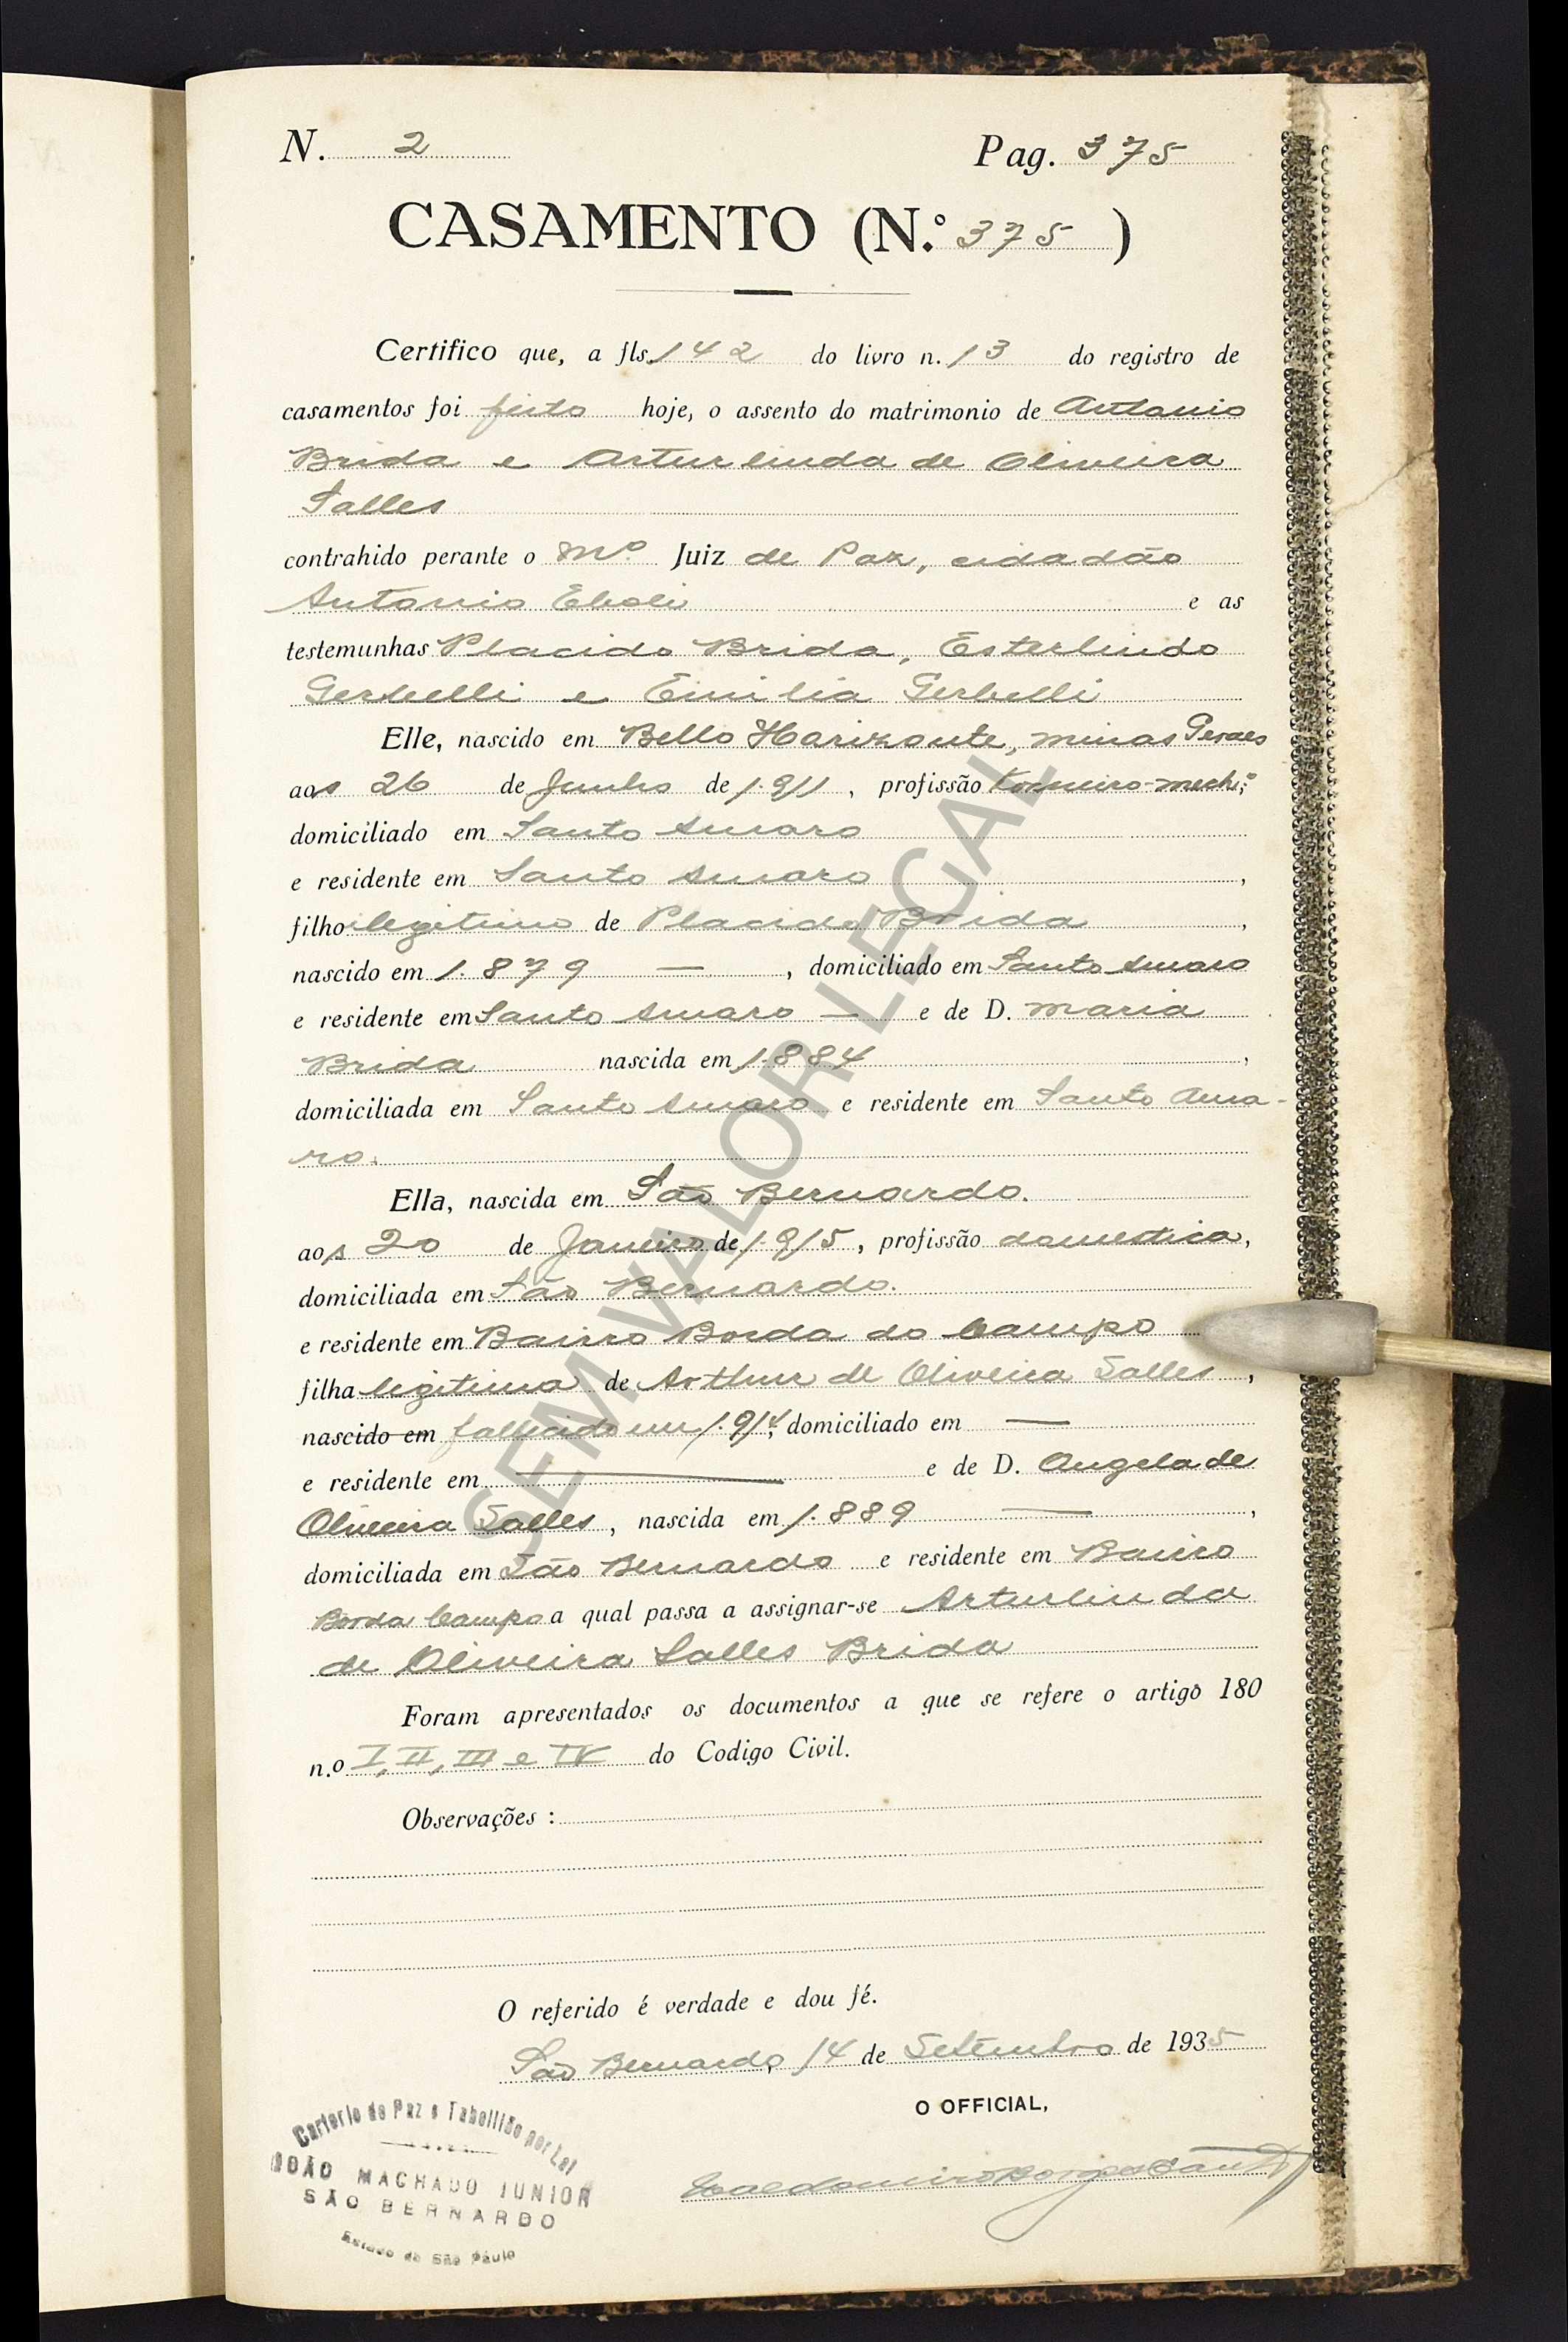 N. 2 Pag. 375
CASAMENTO (N.º 375 )
Certifico que, a fls. 142 do livro n. 13 do registro de
casamentos foi feito hoje, o assento do matrimonio de Antonio
Brida e Arturlinda de Oliveira
Salles
contrahido perante o Mº Juiz de Paz, cidadão
Antonio Eboli e as
testemunhas Placido Brida, Esterlindo
Gerbelli e Emilia Gerbelli
Elle, nascido em Bello Horizonte, Minas Geraes
aos 26 de Junho de 1.911, profissão torneiro-mechº,
domiciliado em Santo Amaro
e residente em Santo Amaro ,
filho legitimo de Placido Brida ,
nascido em 1.879 — , domiciliado em Santo Amaro
e residente em Santo Amaro — e de D. Maria
Brida nascida em 1.884 ,
domiciliada em Santo Amaro e residente em Santo Ama-
ro.
Ella, nascida em São Bernardo.
aos 20 de Janeiro de 1.915, profissão domestica,
domiciliada em São Bernardo.
e residente em Bairro Borda do Campo
filha legitima de Arthur de Oliveira Salles ,
nascido em fallecido em 1.914, domiciliado em —
e residente em — e de D. Angela de
Oliveira Salles, nascida em 1.889 — ,
domiciliada em São Bernardo e residente em Bairro
Borda Campo a qual passa a assignar-se Arturlinda
de Oliveira Salles Brida
Foram apresentados os documentos a que se refere o artigo 180
n.o I, II, III e IV do Codigo Civil.
Observações :
O referido é verdade e dou fé.
São Bernardo, 14 de Setembro de 1935
O OFFICIAL,
Cartorio de Paz e Tabellião por Lei
JOÃO MACHADO JUNIOR
SÃO BERNARDO
Estado de São Paulo
SEM VALOR LEGAL